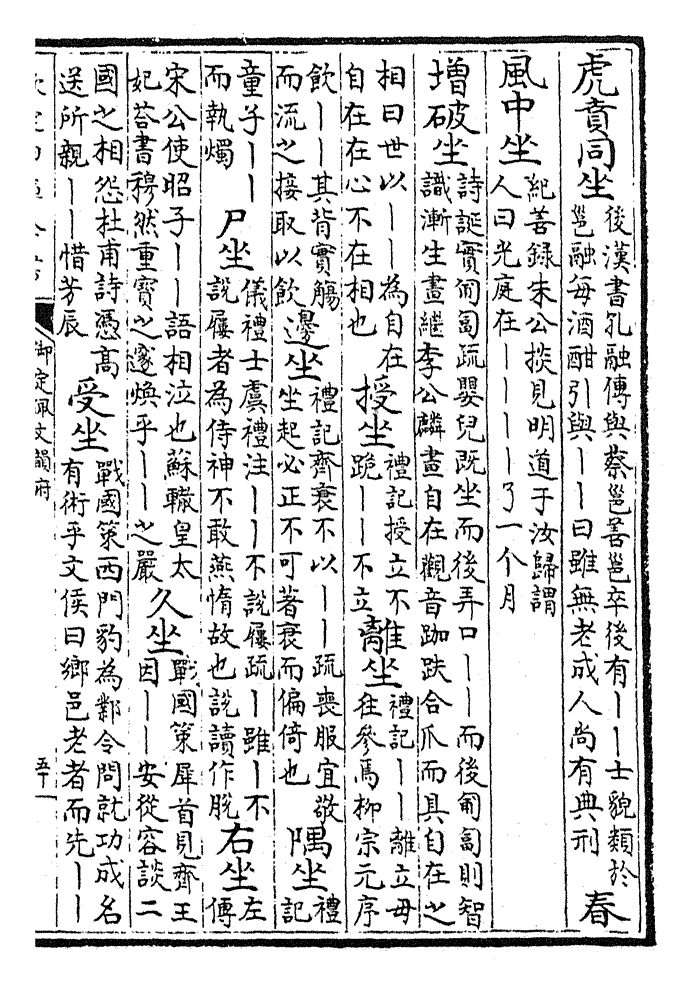 虎賁同坐
後漢書孔融傳與蔡邕善邕卒後有丨丨士貌類於
邕融每酒酣引與丨丨曰雖無老成人尚有典刑
春
風中坐
紀善録朱公掞見明道于汝歸謂
人曰光庭在丨丨丨丨了一个月
增破坐
詩誕實匍匐疏嬰兒既坐而後弄口丨丨而後匍匐則智
識漸生畫繼李公麟畫自在觀音跏趺合爪而具自在之
相曰世以丨丨為自在
自在在心不在相也
授坐
禮記授立不
跪丨丨不立
離坐
禮記丨丨離立毋
往參焉柳宗元序
飲丨丨其背實觴
而流之接取以飲
邊坐
禮記齊衰不以丨丨疏喪服宜敬
坐起必正不可著衰而偏倚也
隅坐
禮
記
童子丨丨
而執燭
尸坐
儀禮士虞禮注丨丨不說屨疏丨雖丨不
說屨者為侍神不敢燕惰故也說讀作脫
右坐
左
傳
宋公使昭子丨丨語相泣也蘇轍皇太
妃荅書穆然重寳之邃煥乎丨丨之嚴
久坐
戰國策犀首見齊王
因丨丨安從容談二
國之相怨杜甫詩憑高
送所親丨丨惜芳辰
受坐
戰國策西門豹為鄴令問就功成名
有術乎文侯曰鄉邑老者而先丨丨
欽定四庫全書
御定佩文韻府
五十